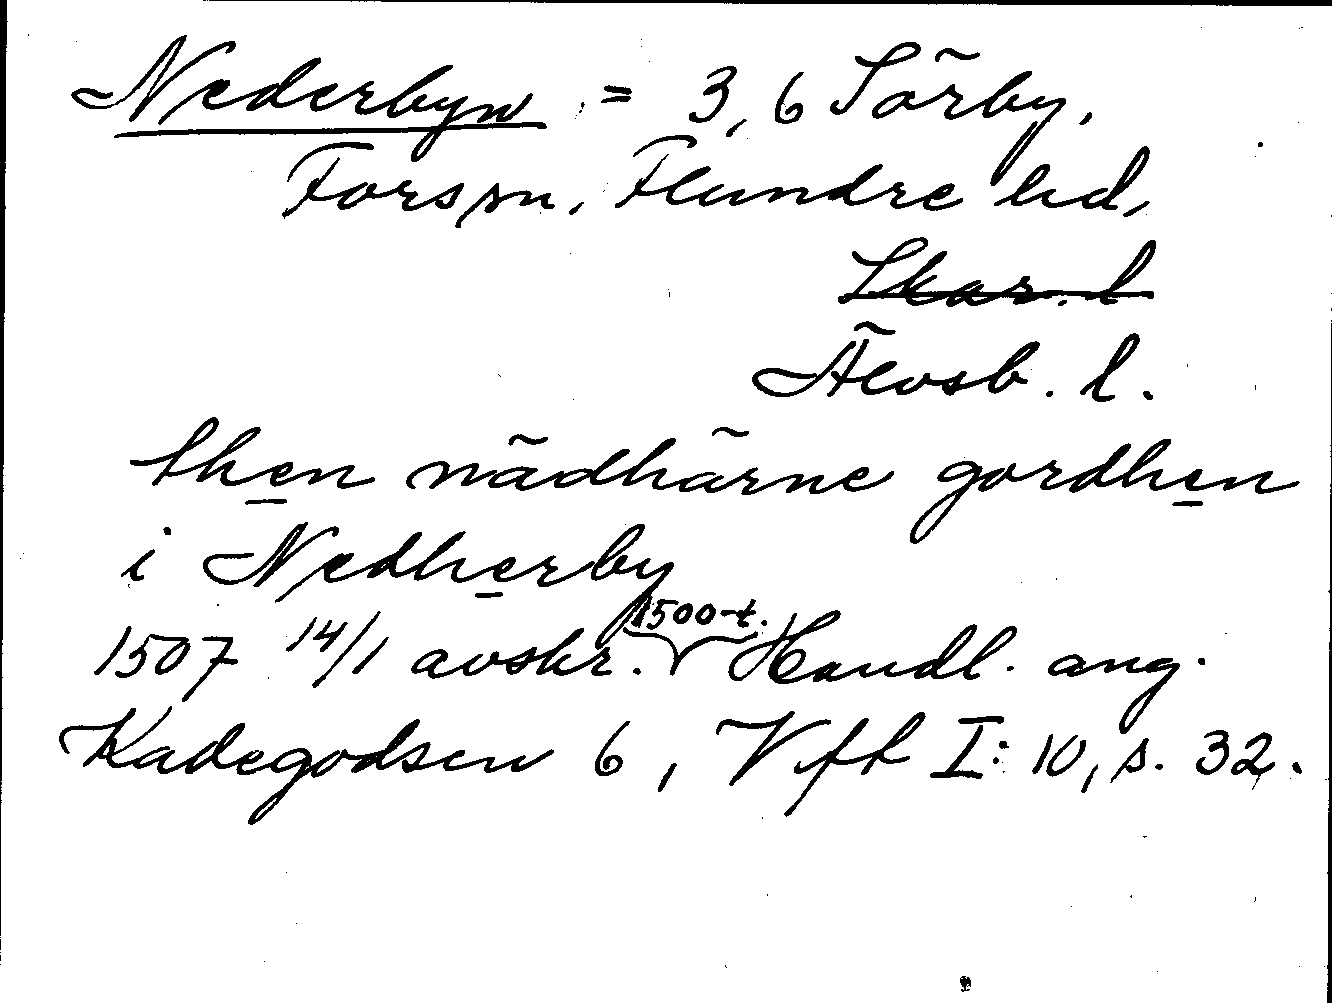 Nederbyn = 3,6 Sörby,
Fors sn, Flundre hd,
Skar. l
Älvsb. l.
then nädhärne gordhen
i Nedherby
1507 14/1 avskr. 1500-t. Handl. ang.
Kadegodsen 6, Vfh I: 10, s. 32.